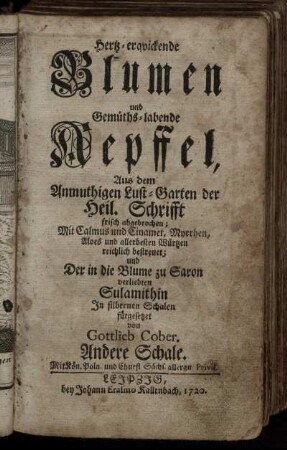 Hertz-erqvickende
Blumen
und
Gemüths-labende
Aepffel,
Aus dem
Anmuthigen Lust-Garten der
Heil. Schrifft
frisch abgebrochen;
Mit Calmus und Cinamet, Myrrhen,
Aloes und allerbesten Würtzen
reichlich bestreuet;
und
Der in die Blume zu Saron
verliebten
Sulamithin
In silbernen Schalen
fürgesetzet
von
Gottlieb Cober.
Andere Schale.
Mit Kön. Poln. und Churfl. Sächs. allergn. Privil.
LEIPZIG,
bey Johann Erasmo Kallenbach, 1720.